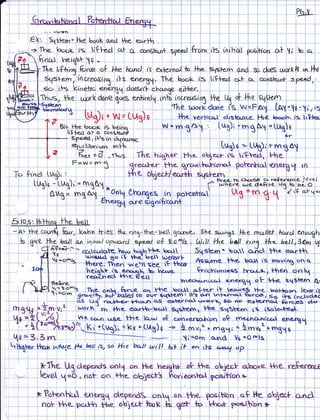 Ph.8
Gravitational Potential Energy
Ex: System = the book and the earth
→ The book is lifted at a constant speed from its initial position at yi to a
final height yf.
The lifting force of the hand is external to the system and so does work W on the
system, increasing its energy. The book is lifted at a constant speed,
so its kinetic energy doesn't change either.
Thus, the work done goes entirely into increasing the Ug of the system
(Ug)i + W = (Ug)f
The work done is W=FΔy (Δy=yf-yi) is
the vertical distance the book is lifted
B/c the book is being
lifted at a constant
speed, it's in dynamic
equilibrium with
Fnet = 0, thus
F = w = mg
W = mgΔy (Ug)i + mgΔy = (Ug)f
or
(Ug)f = (Ug)i + mgΔy
The higher the object is lifted, the
greater the gravitational potential energy in
the object/earth system.
To find (Ug):
(Ug)f - (Ug)i = mgΔy
ΔUg = mgΔy
Only changes in potential
energy are significant
free to choose a reference level
where we define Ug to be 0
Ug = mgy
Ex.10.5: Hitting the bell
-At the county fair, Katie tries the ring-the-bell game. She swings the mallet hard enough
to give the ball an initial upward speed of 8.0 m/s. Will the ball ring the bell, 3.0m up
calculate how high the ball
would go if the bell weren't
there. Then we'll see if that
height is enough to have
reached the bell
System = ball and the earth
Assume the ball is moving on a
frictionless track, then only
mechanical energy of the system
The only force on the ball after it leaves the bottom lever is
gravity, but based on our system it's an internal force, so its included
as Ug rather than as external work, so no external forces do
work on the earth/ball system, the system is isolated.
We can use the law of conservation of mechanical energy
mgyf = ½mvi²
Ki + (Ug)i = Kf + (Ug)f → ½mvi² + mgyi = ½mvf² + mgyf
yi=0m and vf=0m/s
yf = 3.3m
↳ higher than where the bell is, so the ball will hit it on its way up
*The Ug depends only on the height of the object above the reference
level y=0, not on the object's horizontal position*
*Potential energy depends only on the position of the object and
not the path the object took to get to that position*